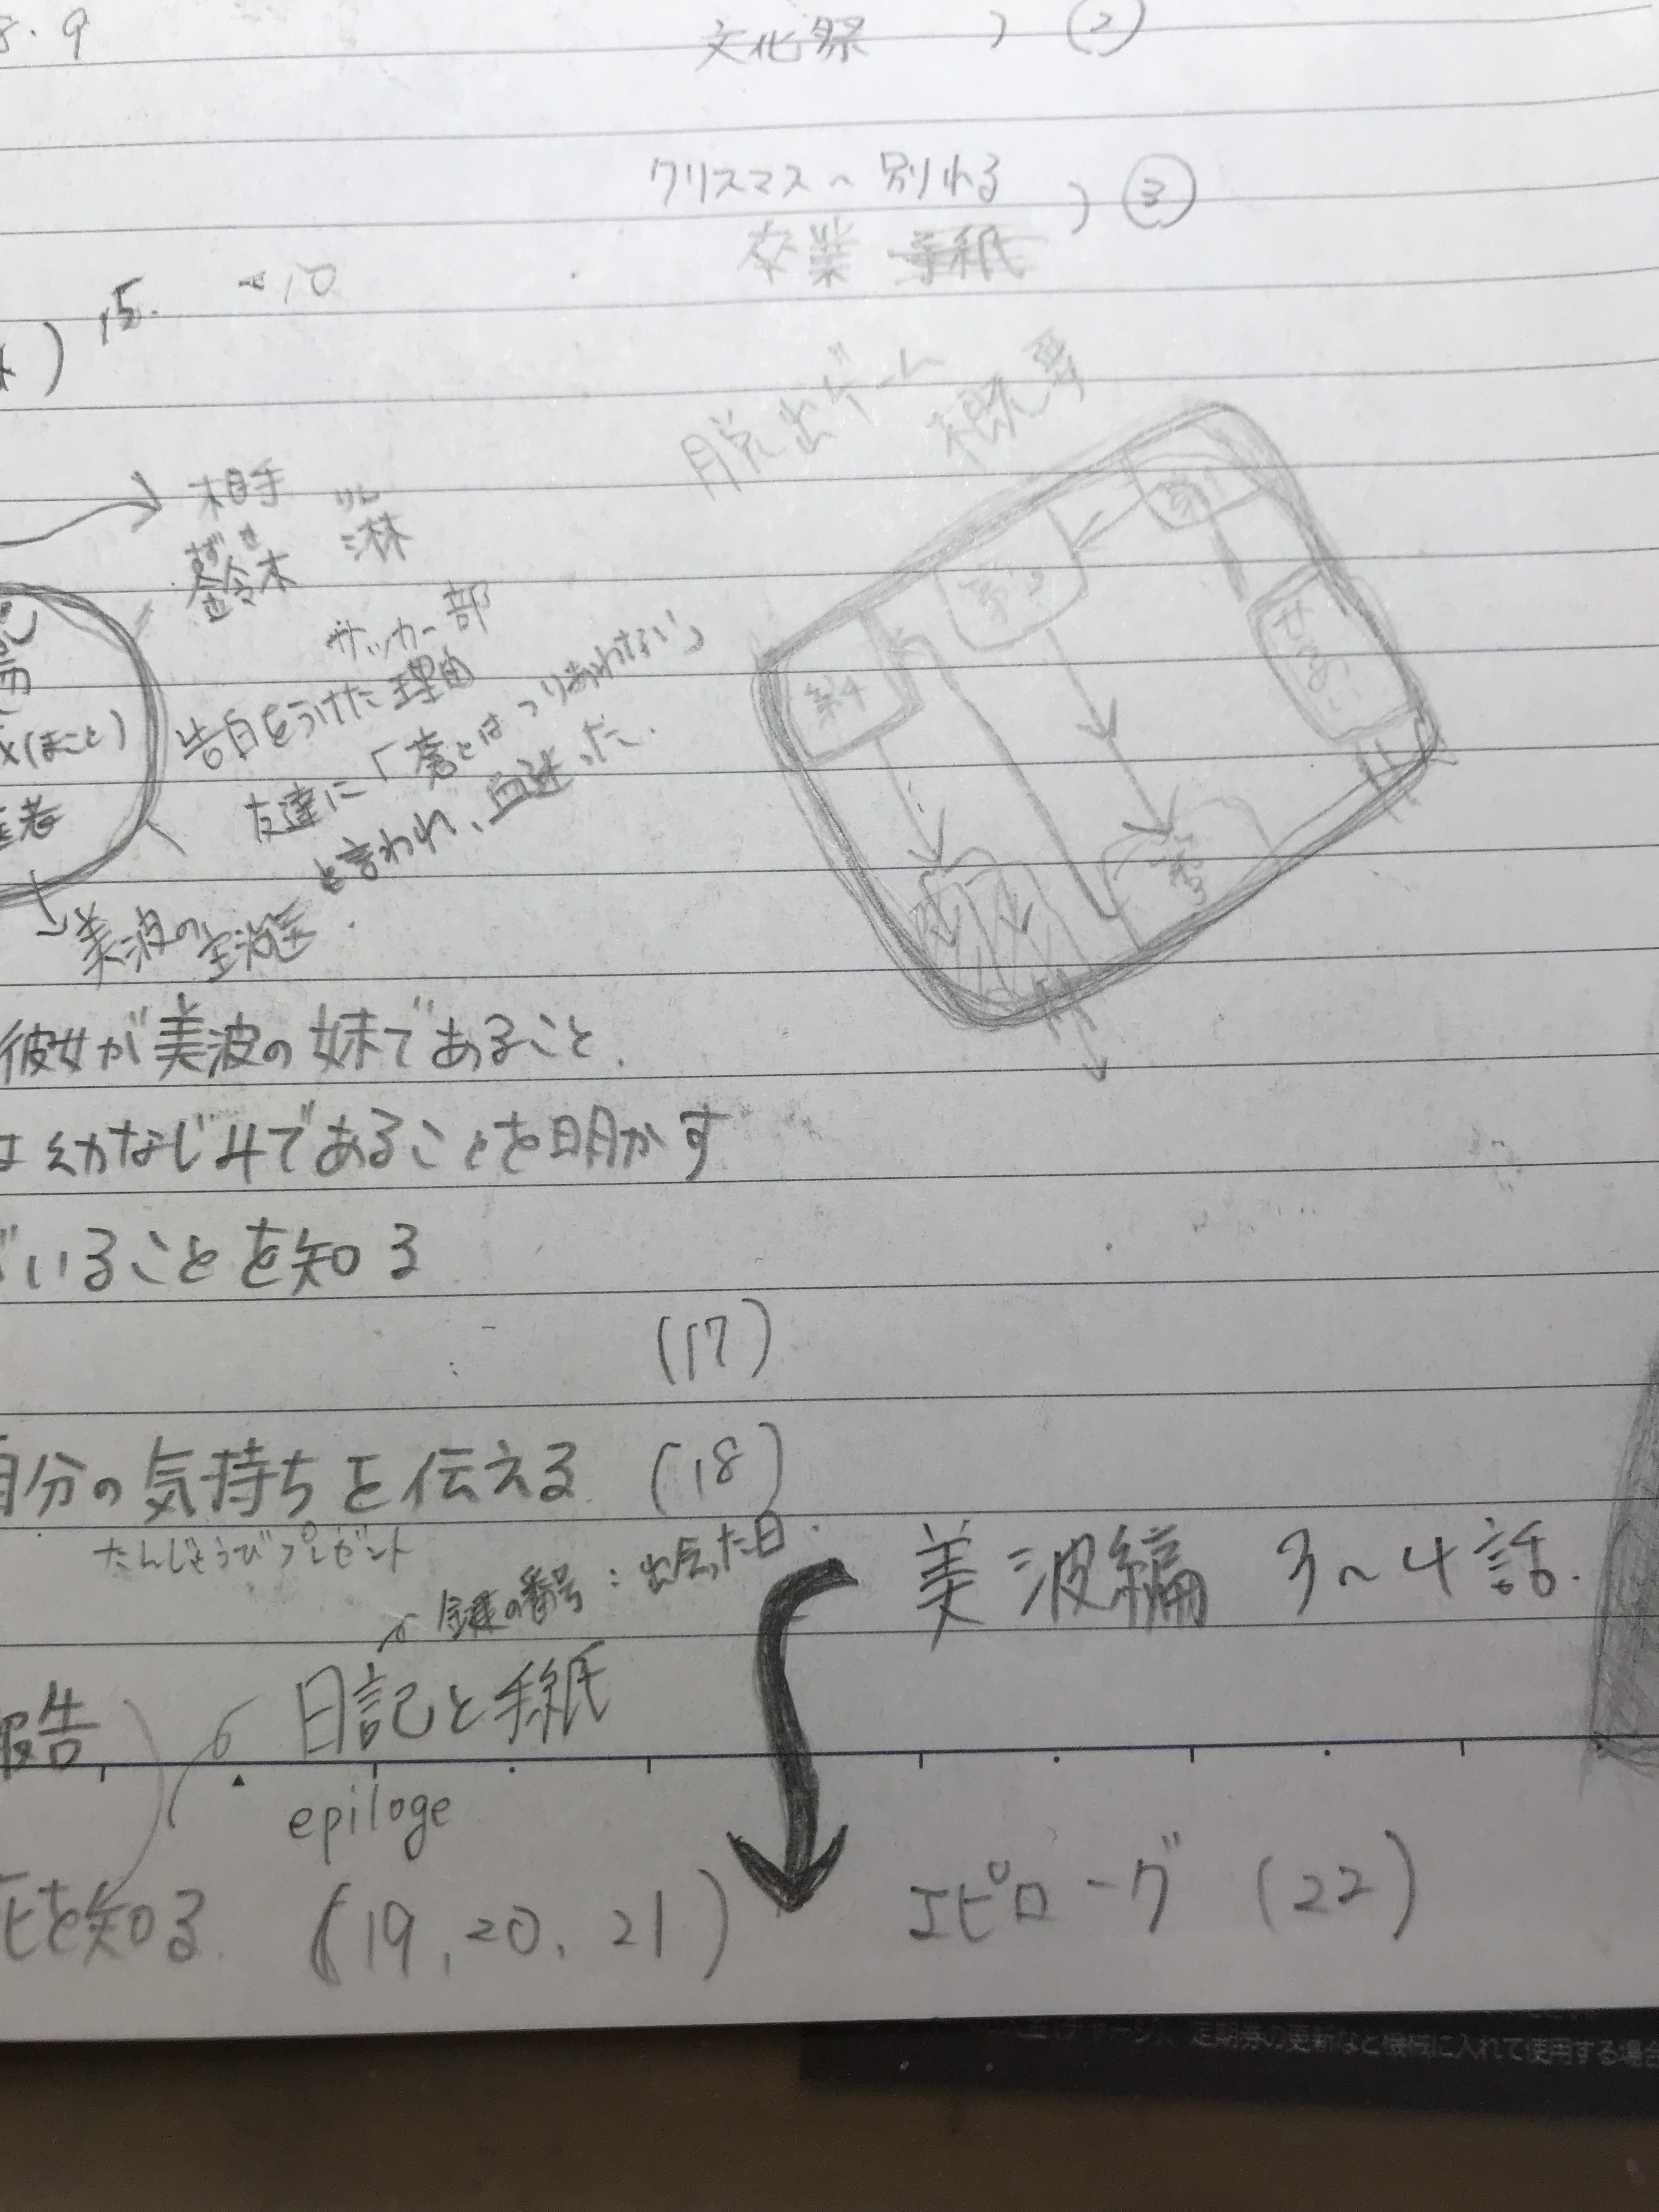 8.9
文化祭 ②
クリスマス〜別れる ③
卒業 手紙
15.
脱出ゲーム
概要
相手
すずき リン
鈴木 淋
サッカー部
告白をうけた理由
友達に「蒼とはつりあわない」
と言われ、血迷った.
(まこと)
→美波の主治医
彼女が美波の妹であること.
は幼なじみであることを明かす
いることを知る
(17)
自分の気持ちを伝える (18)
たんじょうびプレゼント
鍵の番号：出会った日.
美波編 3〜4話.
報告
日記と手紙
epiloge
を知る. (19, 20, 21)
エピローグ (22)
チャージ、定期券の更新など機械に入れて使用する場合